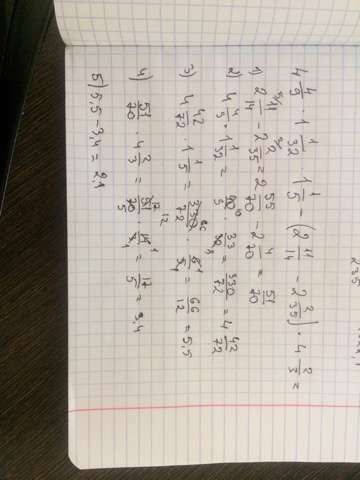 4 4/9 · 1 1/32 · 1 1/5 − (2 11/14 − 2 2/35) · 4 2/3 =
1) 2 11/14 − 2 2/35 = 2 55/70 − 2 4/70 = 51/70
2) 4 4/9 · 1 1/32 = 40/9 · 33/32 = 330/72 = 4 42/72
3) 4 42/72 · 1 1/5 = 330/72 · 6/5 = 66/12 = 5,5
4) 51/70 · 4 2/3 = 51/70 · 14/3 = 17/5 = 3.4
5) 5,5 − 3,4 = 2,1
235